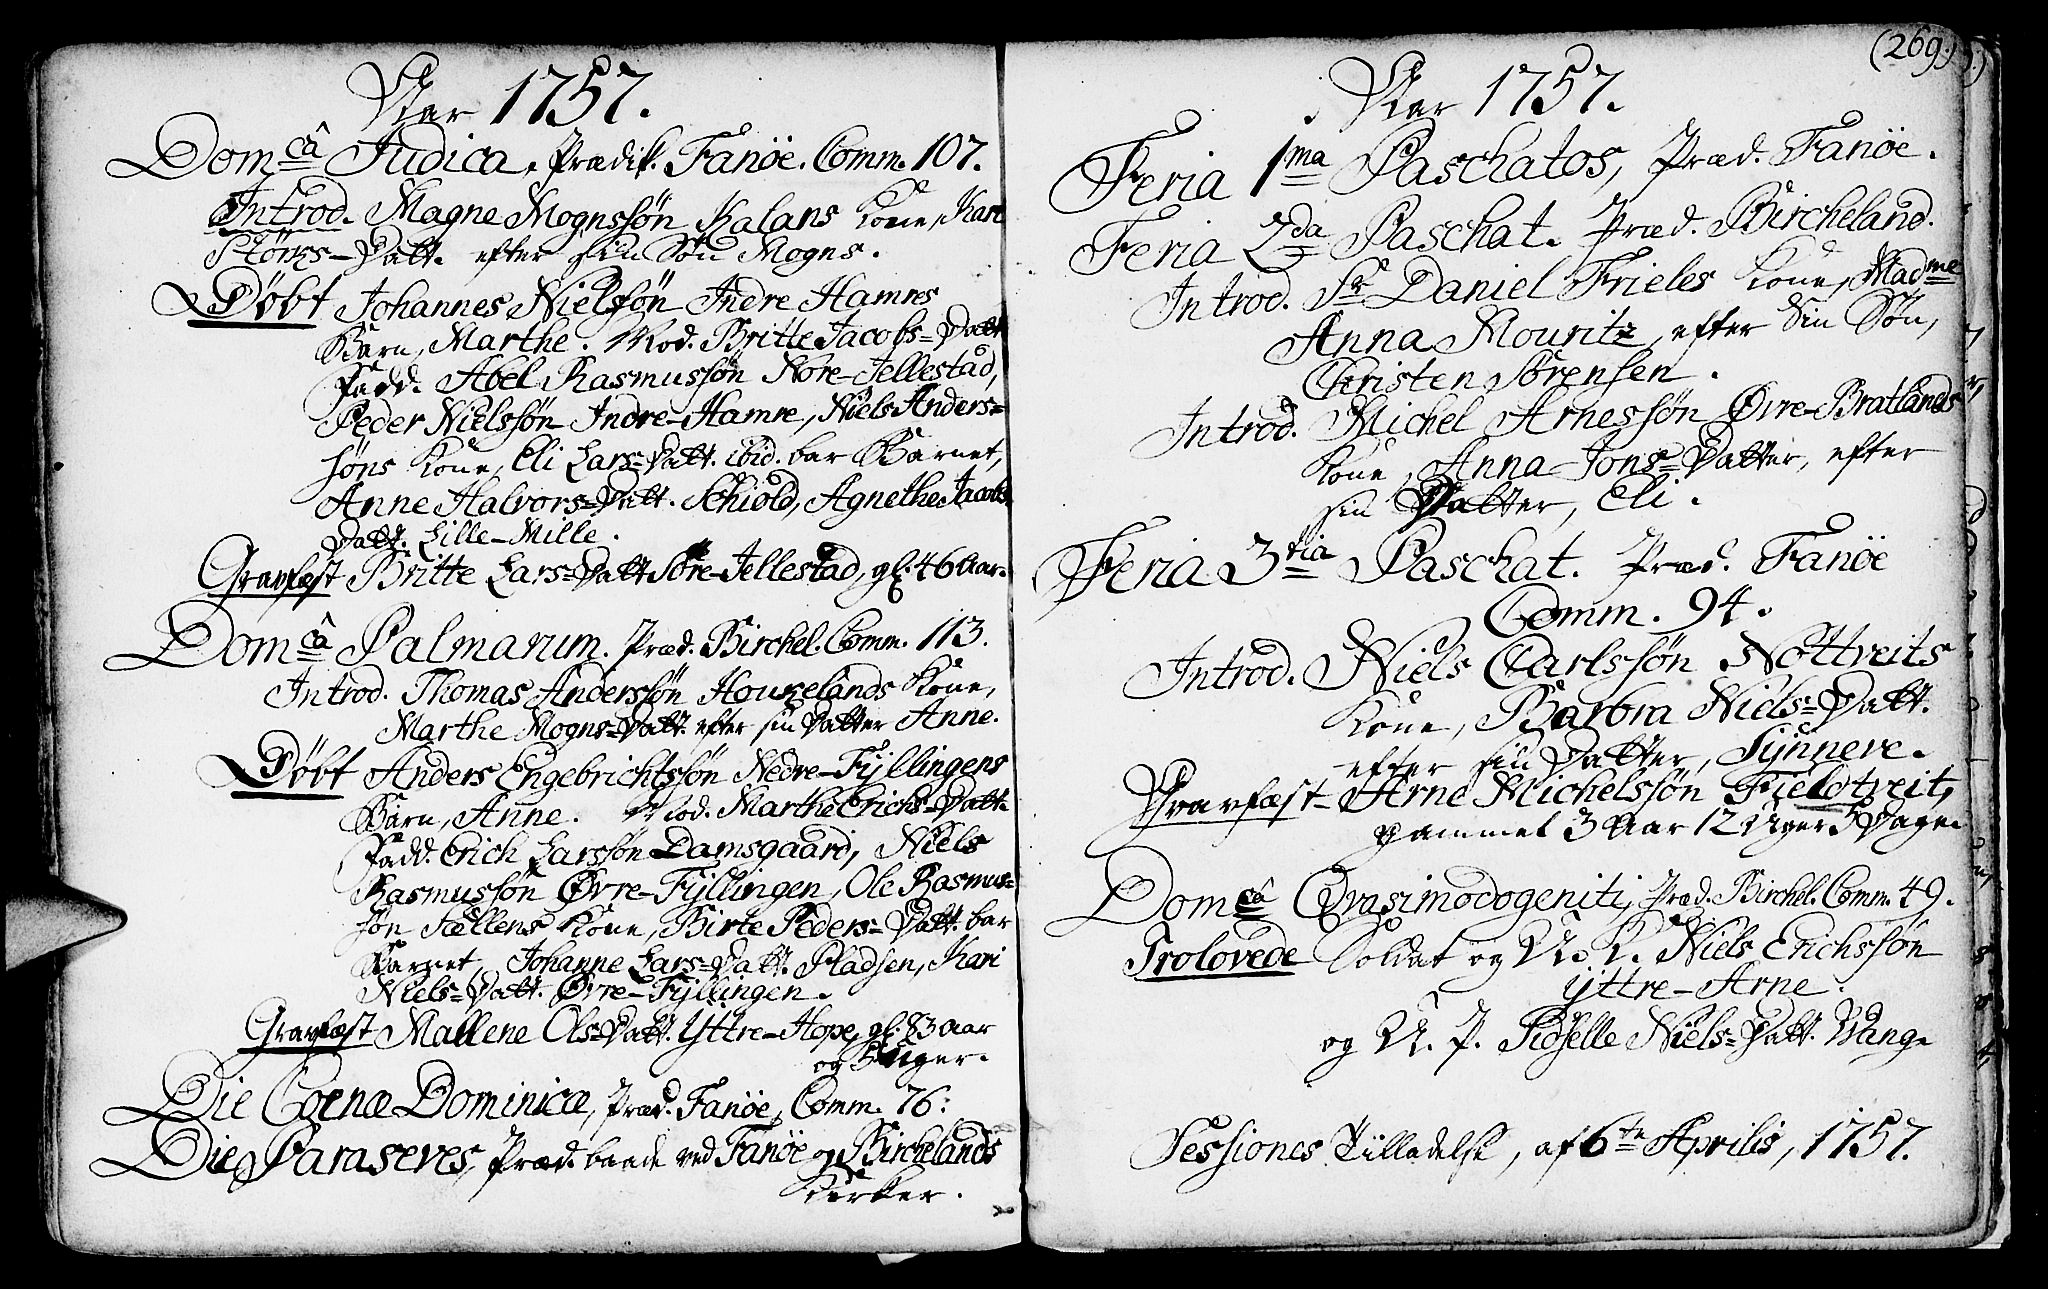 Aar 1757.
Dom câ Judica, Prædik. Fanöe. Comm. 107.
Introd. Magne Mognssøn Kalans Kone, Kari
Störks-Datt. efter sin Søn Mogns.
Döbt Johannes Nielssøn Indre Hamres
Barn, Marthe. Mod. Britte Jacobs=Datt.
Fadd. Abel Rasmussøn Nore-Jellestad,
Peder Nielssøn Indre-Hamre, Niels Anders=
søns Kone, Eli Lars=Datt. ibid. bar Barnet,
Anne Halvors=Datt. Schiold, Agnethe Jacobs
Datt. Lille-Mille.
Gravfæst Britte Lars=Datt Söre-Jellestad, gl. 46 Aar.
Dom câ Palmarum. Præd. Birchel. Comm. 113.
Introd. Thomas Anderssøn Houkelands Kone,
Marthe Mogns=Datt. efter sin Datter Anne.
Döbt Anders Engebrichtssøn Nedre-Fyllingens
Barn, Anne. Mod. Marthe Erichs=Datt.
Fadd. Erich Larssøn Damsgaard, Niels
Rasmussøn Øvre-Fyllingen, Ole Rasmus=
søn Sællens Kone, Birte Peders=Datt. bar
Barnet, Johanne Lars=Datt. Pladsen, Kari
Niels=Datt. Øvre-Fyllingen.
Gravfæst Mallene Ols=Datt. Yttre-Hope, gl. 83 Aar
og 5 Uger.
Die Coenæ Dominicæ, Præd. Fanöe, Comm. 76.
Die Paraseves, Præd. baade ved Fanöe og Birchelands
Kirker.
(269.)
Aar 1757.
Feria 1ma Paschatos, Præd. Fanöe.
Feria 2da Paschat. Præd. Bircheland.
Introd. Sr Daniel Frieles Kone, Madme
Anna Mouritz, efter sin Søn,
Christen Sörensen.
Introd. Michel Arnessøn Øvre-Bratlands
Kone, Anna Jons=Datter, efter
sin Datter, Eli.
Feria 3tia Paschat. Præd. Fanöe
Comm. 94.
Introd. Niels Carlssøn Nottveits
Kone, Barbra Niels=Datt.
efter sin Datter, Synneve.
Gravfæst Arne Michelssøn Fieldtveit,
gammel 3 Aar 12 Uger 5 Dage.
Dom câ Qvasimodogeniti, Præd. Birchel. Comm. 49.
Trolovede Soldat og U. K. Niels Erichssøn
Yttre-Arne.
og U. P. Siöselle Niels=Datt. Unnge
Sessiones Tilladelse, af 6te Aprilis, 1757.